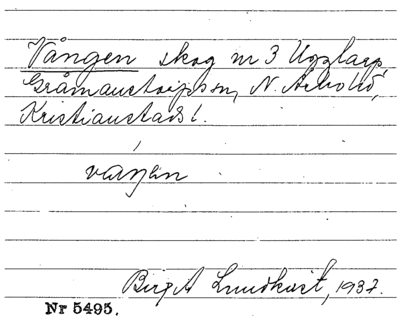 Vången skog nr 3 Ugglarp,
Gråmanstorps sn, N. Åsbo hd,
Kristianstads l.
vaŋen
Birgit Lundkvist, 1937.
Nr 5495.